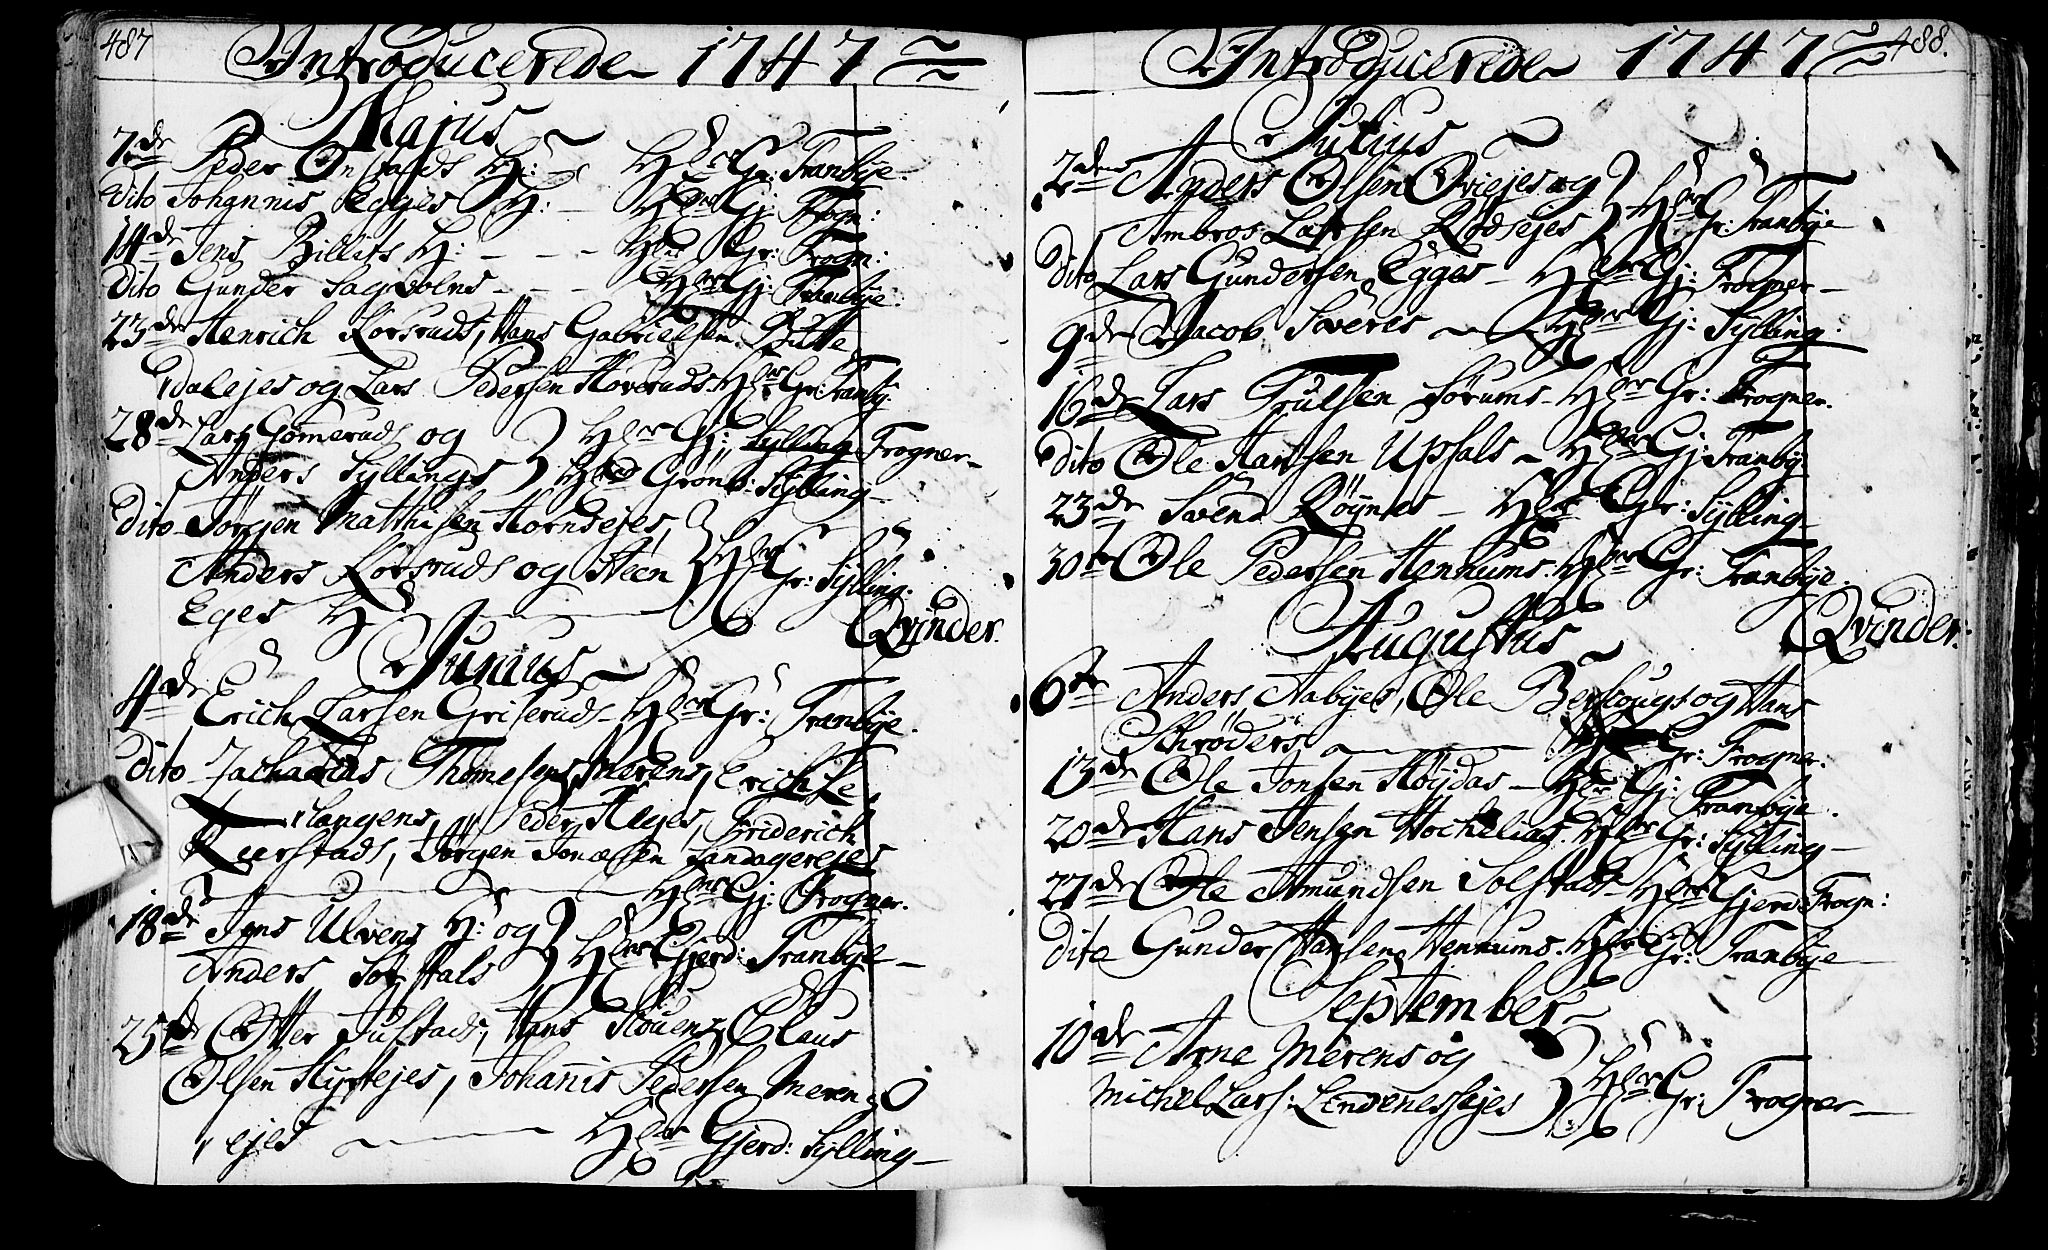 487
Introducerede 1747
Majus
7de Peder Onstads H: H Gr: Tranbye.
Dito Johannis Egges H: Gj: Frogn:
14de Jens Billits H: - - - Gr: Frogn:
Dito Gunder Sagvolens - - - Gj: Tranbye.
23de Henrich Korsruds, Hans Gabrielsen
dalejes og Lars Pedersen Hoveruds. Gr: Tranby.
28de Lars Gomeruds og Gj: Sylling Frogner -
Anders Syllings Grønb: Sylling -
Dito Jørgen Matthisen Hornsejes,
Anders Korsruds og Steen Gr: Sylling.
Eges H
Qvinder.
Junius
4de Erich Larsen Griseruds - Gr: Tranbye.
Dito Zacharias Thomesens Merens, Erich Le
langens, Peder Heges, Friderich
Kierstads, Jørgen Jonæsen Landagerejes
Gj: Frogner.
18de Jens Ulvens H: og
Anders Solstals Gjerd: Tranbye -
25de Otter Justads, Hans Skuens, Claus
Olsen Hyttejes, Johannis Pedersen Meren
ejes Gjerd: Sylling -
488.
Introducerede 1747
Julius
2den Anders Olsen Oviejes og
Ambros Larsen Rødsejes Gr: Tranbye
Dito Lars Gundersen Egges - Gj: Frogner -
9de Jacob Sveres - Gj: Sylling:
16de Lars Trulsen Sørums - Gr: Frogner.
Dito Ole Hansen Upsals - Gj: Tranby
23de Svend Røynes - Gr: Sylling -
30te Ole Pedersen Hennums. Gr: Tranbye.
Augustus
Qvinder.
6te Anders Aabyes, Ole Berskougs og Hans
Schrøders Gr: Frogner.
13de Ole Jonsen Høydas - Gj: Tranbye.
20de Hans Jensen Hochelias. Gr: Sylling -
27de Ole Amundsen Solstads - Gjerd: Frogn:
Dito Gunder Hansen Hennums. Gr: Tranbye -
September
10de Arne Merens og
Michel Lars: Lindenessejes Gr: Frogner -